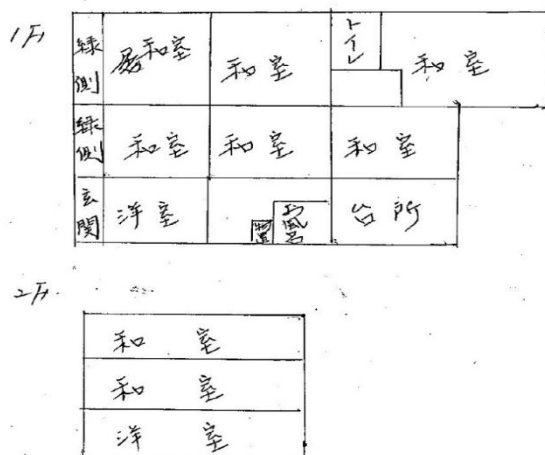 1F
縁側
和室
和室
トイレ
和室
縁側
和室
和室
和室
玄関
洋室
物置
お風呂
台所
2F
和室
和室
洋室